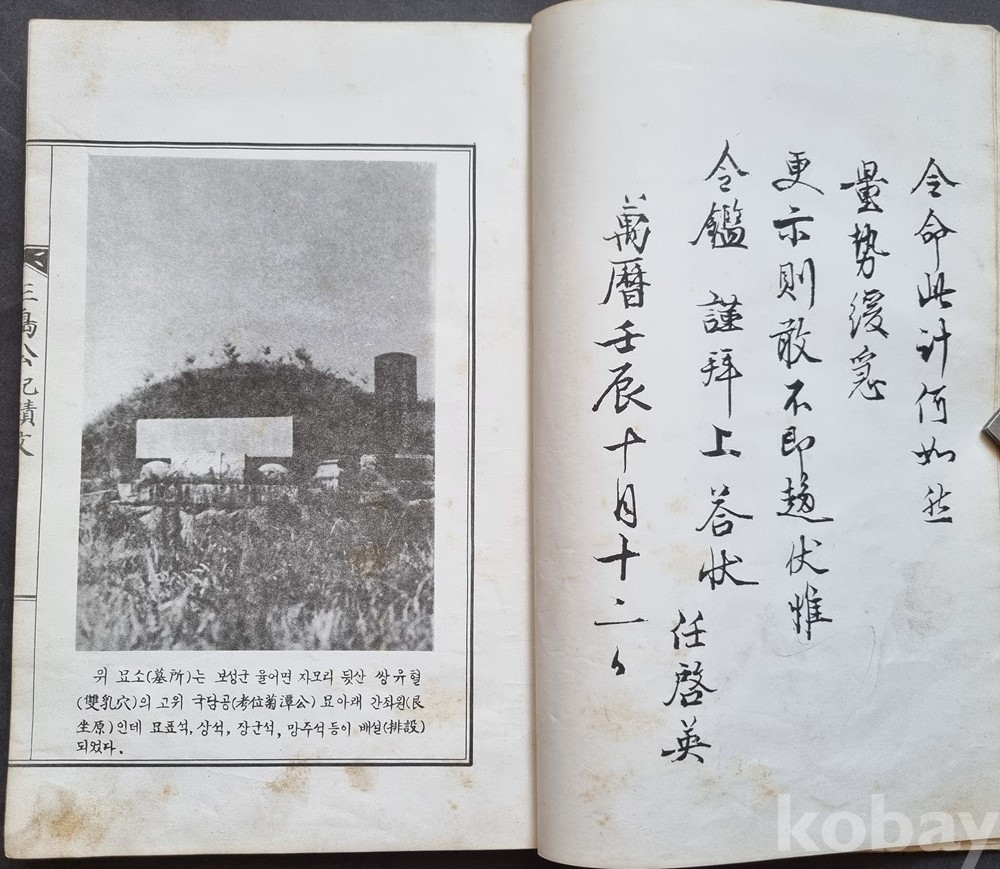 三島公記蹟文
위 묘소(墓所)는 보성군 율어면 자모리 뒷산 쌍유혈
(雙乳穴)의 고위 국담공(考位菊潭公) 묘아래 간좌원(艮
坐原)인데 묘표석, 상석, 장군석, 망주석등이 배설(排設)
되었다.
令命此計何如然
量势緩急
更示則敢不即趨伏惟
令鑑 謹拜上答狀
任啓英
萬曆壬辰十月十二
kobay